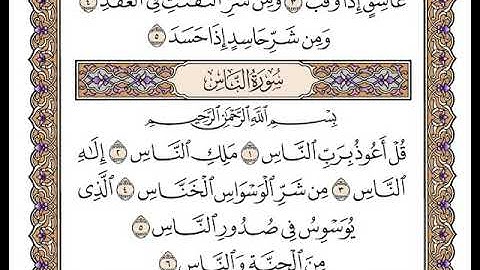 غَاسِقٍ إِذَا وَقَبَ ٣ وَمِن شَرِّ النَّفَّٰثَٰتِ فِي الْعُقَدِ ٤
وَمِن شَرِّ حَاسِدٍ إِذَا حَسَدَ ٥
سُورَةُ النَّاسِ
بِسْمِ اللَّهِ الرَّحْمَٰنِ الرَّحِيمِ
قُلْ أَعُوذُ بِرَبِّ النَّاسِ ١ مَلِكِ النَّاسِ ٢ إِلَٰهِ
النَّاسِ ٣ مِن شَرِّ الْوَسْوَاسِ الْخَنَّاسِ ٤ الَّذِي
يُوَسْوِسُ فِي صُدُورِ النَّاسِ ٥
مِنَ الْجِنَّةِ وَالنَّاسِ ٦